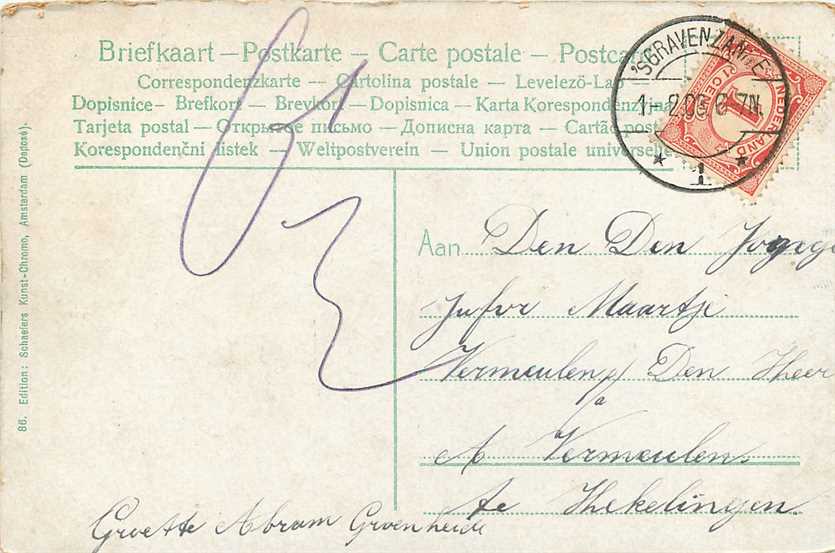 Briefkaart — Postkarte — Carte postale — Postcar
Correspondenzkarte — Cartolina postale — Levelező-La
Dopisnice — Brefkort — Brevkort — Dopisnica — Karta Korespondenzyjna
Tarjeta postal — Открытое письмо — Дописна карта — Cartâo post
Korespondenční listek — Weltpostverein — Union postale universelle
'SGRAVENZANDE
6-7N
1
NEDERLAND
1 CENT
86. Edition: Schaefers Kunst-Chromo, Amsterdam (Deposé).
Aan Den Den
Jufvr Maartje
Vermeulen p/a Den Heer
A Vermeulen
te Hekelingen
Groette Abram Groenheide